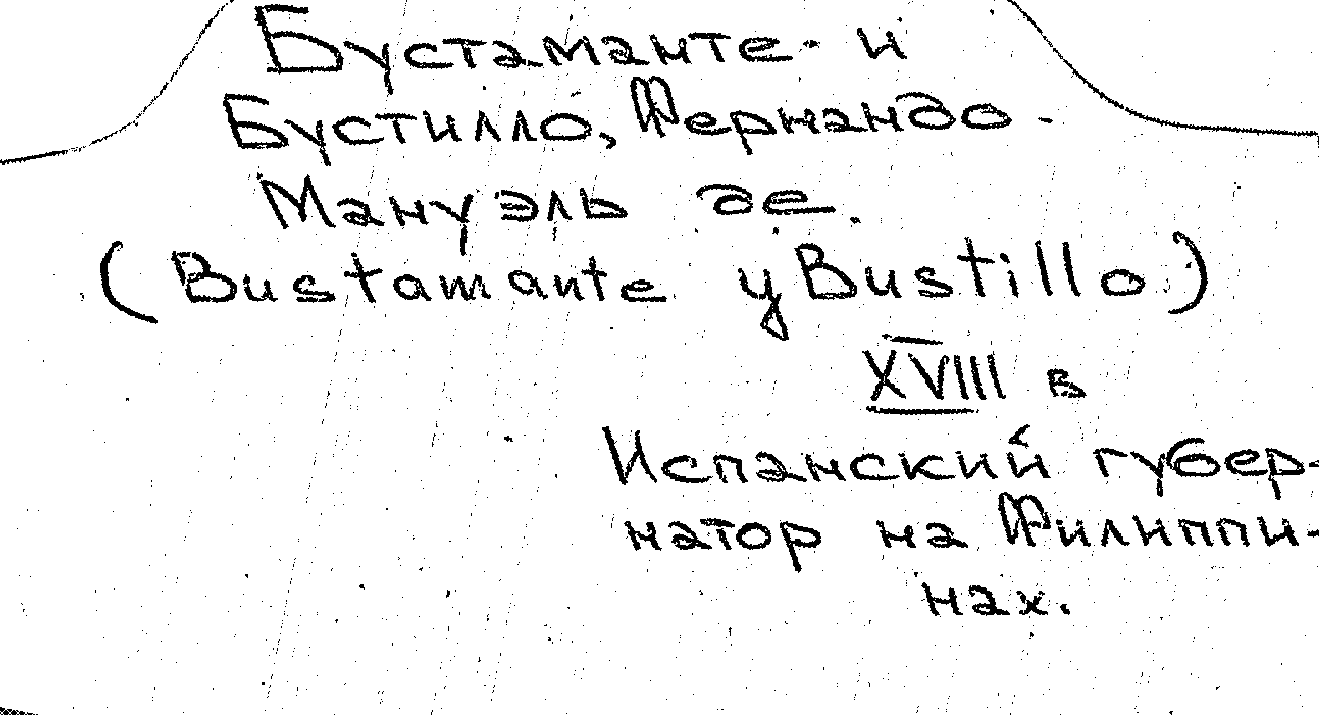 Бустаманте- и
Бустилло, Фернандо -
Мануэль де.
(Bustamante y Bustillo)
XVIII в
Испанский губер-
натор на Филиппи-
нах.